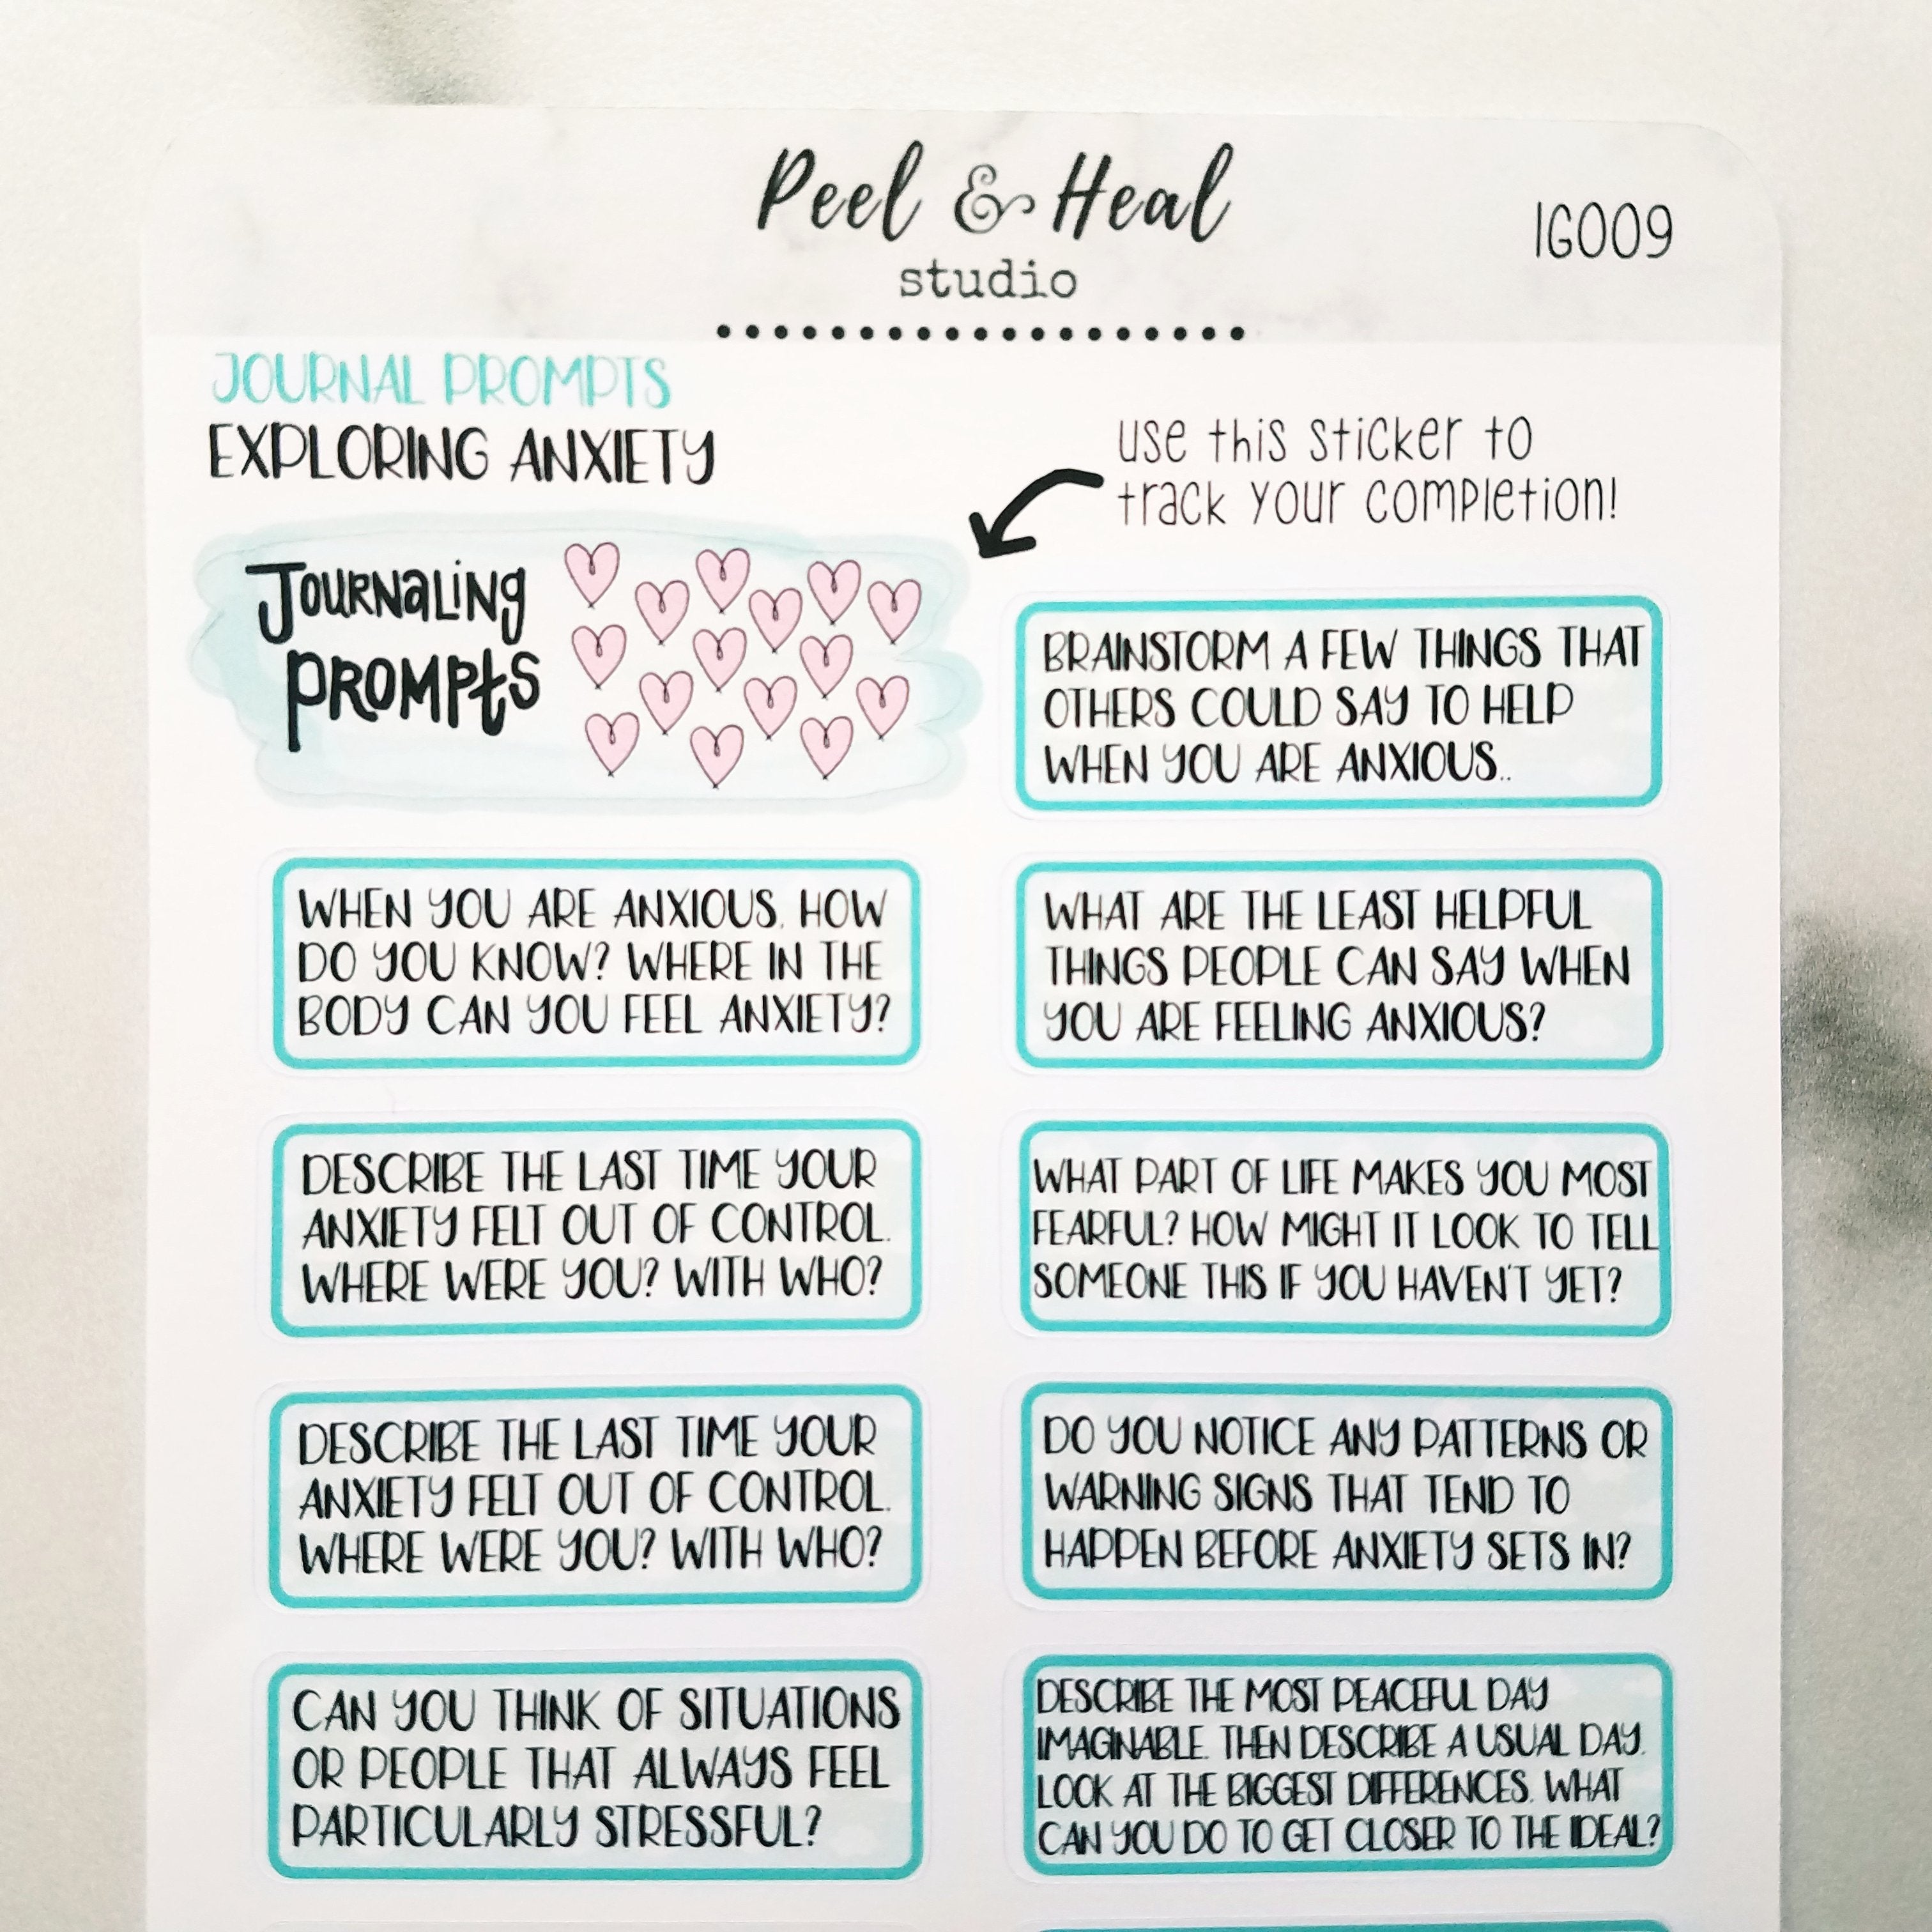 Peel & Heal
studio
IG009
JOURNAL PROMPTS
EXPLORING ANXIETY
use this sticker to
track your completion!
JOURNALING
PROMPTS
BRAINSTORM A FEW THINGS THAT
OTHERS COULD SAY TO HELP
WHEN YOU ARE ANXIOUS..
WHEN YOU ARE ANXIOUS, HOW
DO YOU KNOW? WHERE IN THE
BODY CAN YOU FEEL ANXIETY?
WHAT ARE THE LEAST HELPFUL
THINGS PEOPLE CAN SAY WHEN
YOU ARE FEELING ANXIOUS?
DESCRIBE THE LAST TIME YOUR
ANXIETY FELT OUT OF CONTROL.
WHERE WERE YOU? WITH WHO?
WHAT PART OF LIFE MAKES YOU MOST
FEARFUL? HOW MIGHT IT LOOK TO TELL
SOMEONE THIS IF YOU HAVEN'T YET?
DESCRIBE THE LAST TIME YOUR
ANXIETY FELT OUT OF CONTROL.
WHERE WERE YOU? WITH WHO?
DO YOU NOTICE ANY PATTERNS OR
WARNING SIGNS THAT TEND TO
HAPPEN BEFORE ANXIETY SETS IN?
CAN YOU THINK OF SITUATIONS
OR PEOPLE THAT ALWAYS FEEL
PARTICULARLY STRESSFUL?
DESCRIBE THE MOST PEACEFUL DAY
IMAGINABLE. THEN DESCRIBE A USUAL DAY.
LOOK AT THE BIGGEST DIFFERENCES. WHAT
CAN YOU DO TO GET CLOSER TO THE IDEAL?